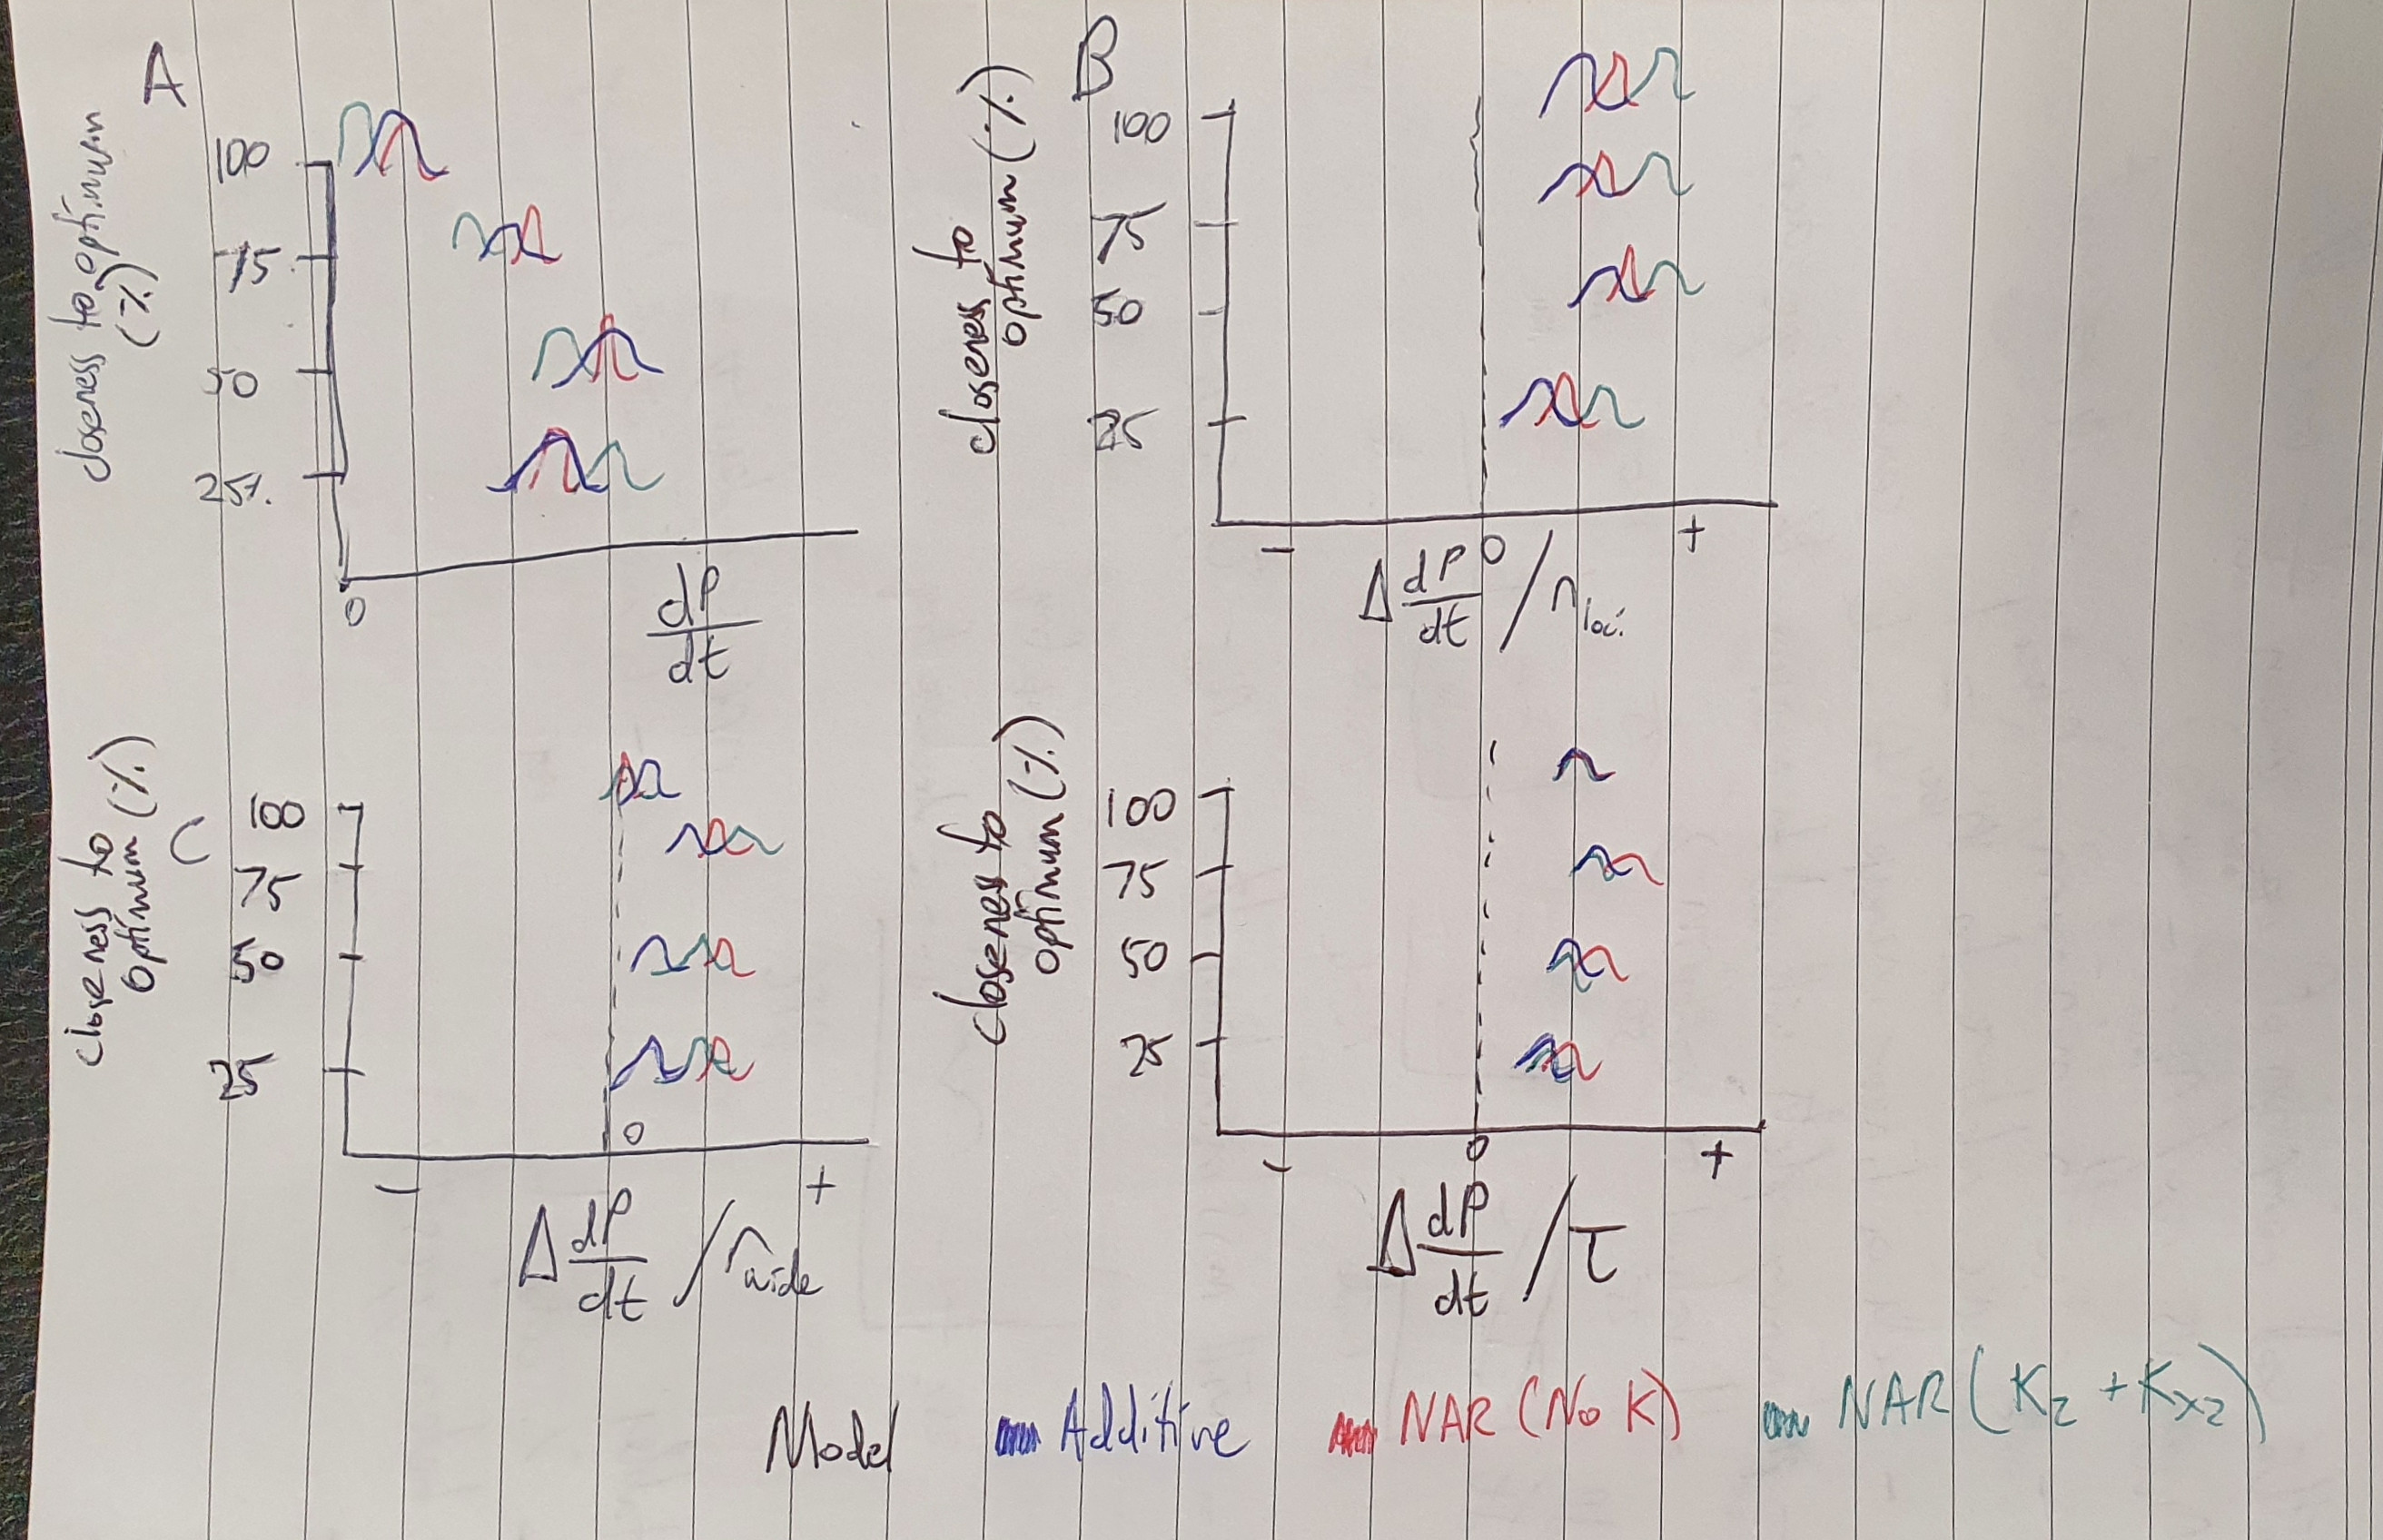 A
closeness to optimum
(%)
100
75
50
25%.
0
dP
dt
B
closeness to
optimum (%)
100
75
50
25
- 0 +
Δ dP / n loci
dt
C
closeness to
optimum (%)
100
75
50
25
- 0 +
Δ dP / r wide
dt
closeness to
optimum (%)
100
75
50
25
- 0 +
Δ dP / τ
dt
Model Additive NAR (No K) NAR (KZ + KXZ)